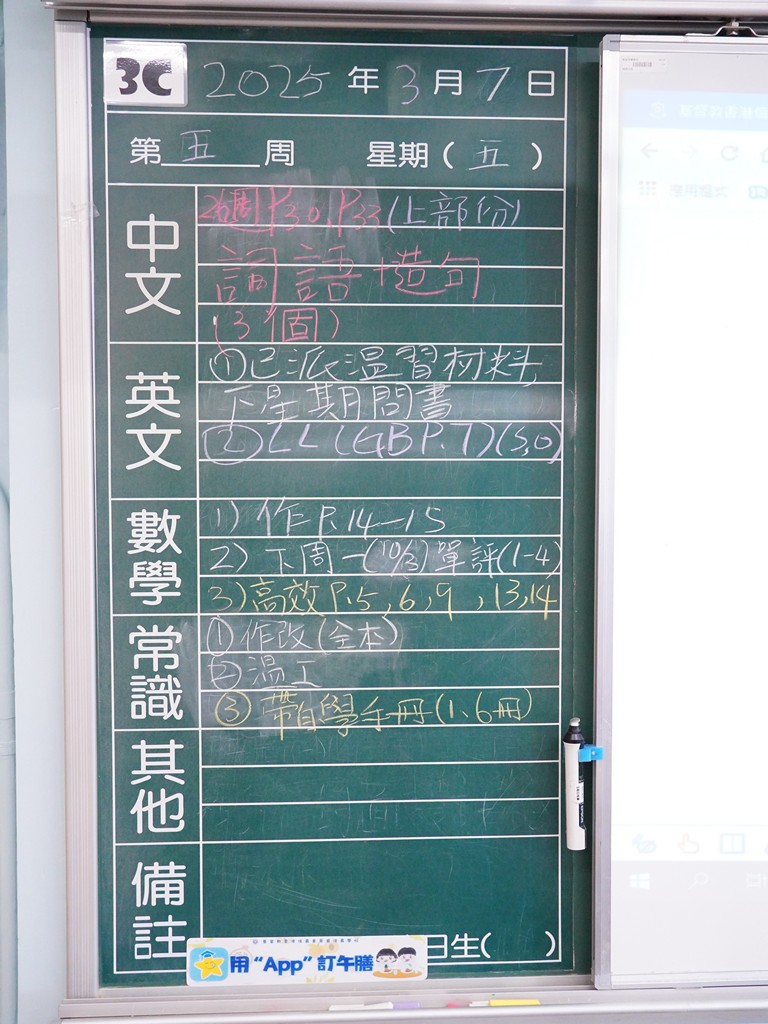 3C 2025年3月7日
第 五 周 星期(五)
中文
26週P.30、P.33(上部份)
詞語+造句
(3個)
英文
①已派溫習材料,
下星期問書
②LL(GBP.7)(S,O)
數學
1)作P.14-15
2)下周一(10/3)單評(1-4)
3)高效P.5,6,9,13,14
常識
①作改(全本)
②溫工
③帶自學手冊(1、6冊)
其他
備註
日生( )
用“App”訂午膳
應用程式